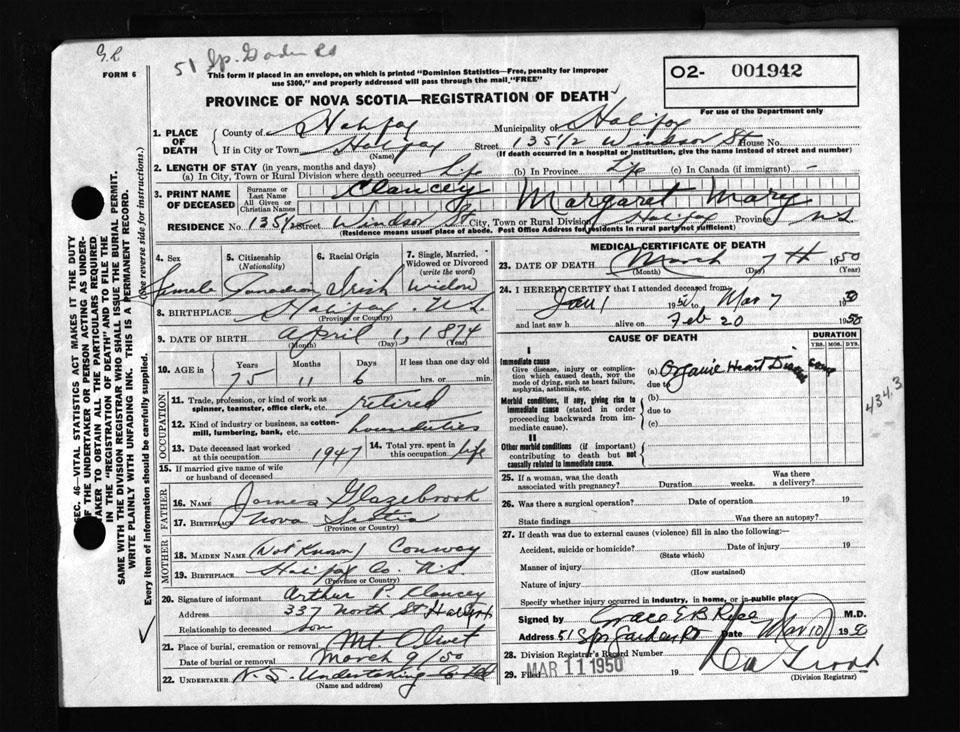 G.R
FORM 6
51 Sp. Garden Rd
This form if placed in an envelope, on which is printed "Dominion Statistics—Free, penalty for improper
use $300," and properly addressed will pass through the mail, "FREE"
O2- 001942
For use of the Department only
PROVINCE OF NOVA SCOTIA—REGISTRATION OF DEATH
1. PLACE OF DEATH
County of Halifax Municipality of Halifax
If in City or Town Halifax Street 135 1/2 Windsor St House No.
(Name) (If death occurred in a hospital or institution, give the name instead of street and number)
2. LENGTH OF STAY (in years, months and days)
(a) In City, Town or Rural Division where death occurred Life (b) In Province Life (c) In Canada (if immigrant) -
3. PRINT NAME OF DECEASED
Surname or Last Name Clancey
All Given or Christian Names Margaret Mary
RESIDENCE No. 135 1/2 Street Windsor St City, Town or Rural Division Halifax Province N.S.
(Residence means usual place of abode. Post Office Address for residents in rural parts not sufficient)
4. Sex Female
5. Citizenship (Nationality) Canadian
6. Racial Origin Irish
7. Single, Married, Widowed or Divorced (write the word) Widow
8. BIRTHPLACE Halifax N.S.
(Province or Country)
9. DATE OF BIRTH April 1, 1874
(Month) (Day) (Year)
10. AGE in Years Months Days If less than one day old
75 11 6 hrs. or min.
OCCUPATION
11. Trade, profession, or kind of work as spinner, teamster, office clerk, etc. retired
12. Kind of industry or business, as cotton-mill, lumbering, bank, etc. houseduties
13. Date deceased last worked at this occupation 1947
14. Total yrs. spent in this occupation life
15. If married give name of wife or husband of deceased
FATHER
16. Name James Glazebrook
17. Birthplace Nova Scotia
(Province or Country)
MOTHER
18. Maiden Name (Not Known) Conway
19. Birthplace Halifax Co. N.S.
(Province or Country)
20. Signature of informant Arthur P. Clancey
Address 337 North St Halifax
Relationship to deceased Son
21. Place of burial, cremation or removal Mt. Olivet
Date of burial or removal March 9/50
22. UNDERTAKER N.S. Undertaking Co Ltd
(Name and address)
MEDICAL CERTIFICATE OF DEATH
23. DATE OF DEATH March 7TH 1950
(Month) (Day) (Year)
24. I HEREBY CERTIFY that I attended deceased from
Jan 1 19 to Mar 7 1950
and last saw h alive on Feb 20 1950
CAUSE OF DEATH
DURATION
YRS. MOS. DYS.
I
Immediate cause
Give disease, injury or complication which caused death, not the mode of dying, such as heart failure, asphyxia, asthenia, etc.
(a) Organic Heart Disease
due to
Morbid conditions, if any, giving rise to immediate cause (stated in order proceeding backwards from immediate cause).
(b)
due to
(c)
434.3
II
Other morbid conditions (if important) contributing to death but not causally related to immediate cause.
25. If a woman, was the death associated with pregnancy? Duration weeks. Was there a delivery?
26. Was there a surgical operation? Date of operation 19
State findings Was there an autopsy?
27. If death was due to external causes (violence) fill in also the following:—
Accident, suicide or homicide? Date of injury 19
(State which)
Manner of injury
(How sustained)
Nature of injury
Specify whether injury occurred in industry, in home, or in public place
Signed by Grace E B Rice M.D.
Address 51 Spr Garden Rd Date Mar 10 1950
28. Division Registrar's Record Number
29. Filed MAR 11 1950 19
(Division Registrar)
SEC. 46—VITAL STATISTICS ACT MAKES IT THE DUTY
OF THE UNDERTAKER OR PERSON ACTING AS UNDER-
TAKER TO OBTAIN ALL THE PARTICULARS REQUIRED
IN THE "REGISTRATION OF DEATH" AND TO FILE THE
SAME WITH THE DIVISION REGISTRAR WHO SHALL ISSUE THE BURIAL PERMIT.
WRITE PLAINLY WITH UNFADING INK. THIS IS A PERMANENT RECORD.
Every item of information should be carefully supplied. (See reverse side for instructions.)